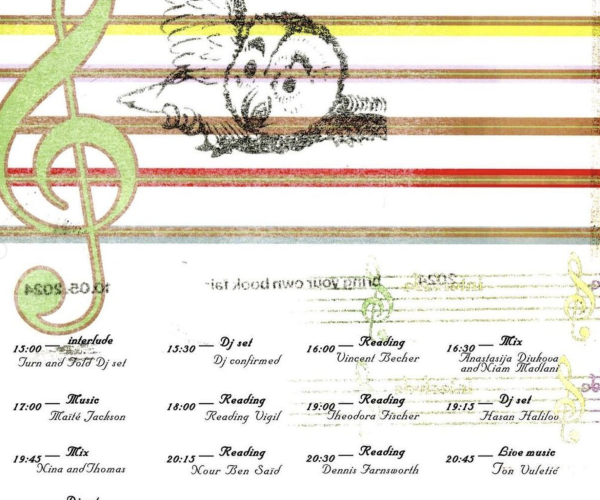 10.05.2024 bring your own book fair 2024
15:00 — interlude
Turn and Fold Dj set
15:30 — Dj set
Dj confirmed
16:00 — Reading
Vincent Becher
16:30 — Mix
Anastasija Diukova
and Niam Madlani
17:00 — Music
Maité Jackson
18:00 — Reading
Reading Vigil
19:00 — Reading
Theodora Fischer
19:15 — Dj set
Hasan Halilou
19:45 — Mix
Nina and Thomas
20:15 — Reading
Nour Ben Saïd
20:30 — Reading
Dennis Farnsworth
20:45 — Live music
Ton Vuletić